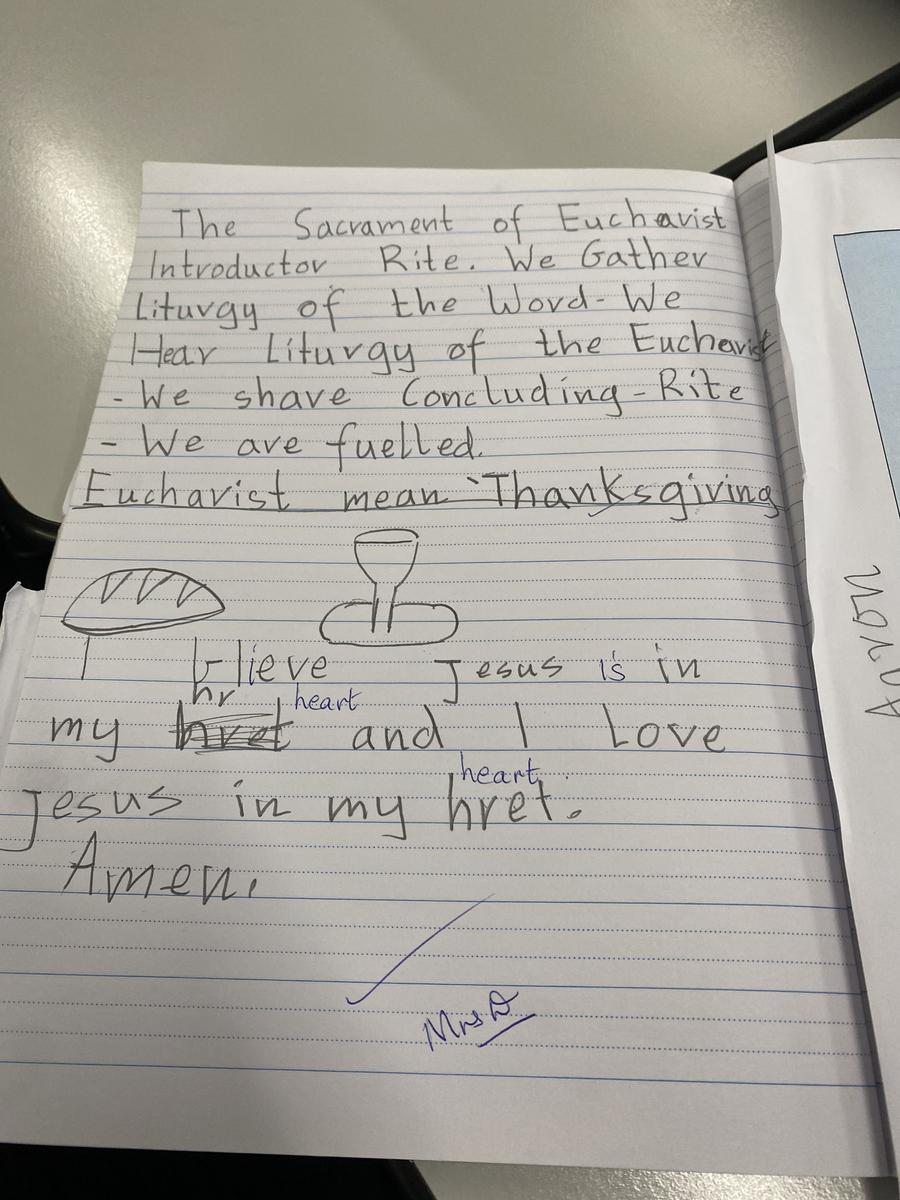 The Sacrament of Eucharist
Introductor Rite. We Gather
Liturgy of the Word - We
Hear Liturgy of the Eucharist
- We share Concluding - Rite
- We are fuelled.
Eucharist mean 'Thanksgiving
I blieve Jesus is in
hr heart
my hret and I Love
heart
Jesus in my hret.
Amen.
Mrs D